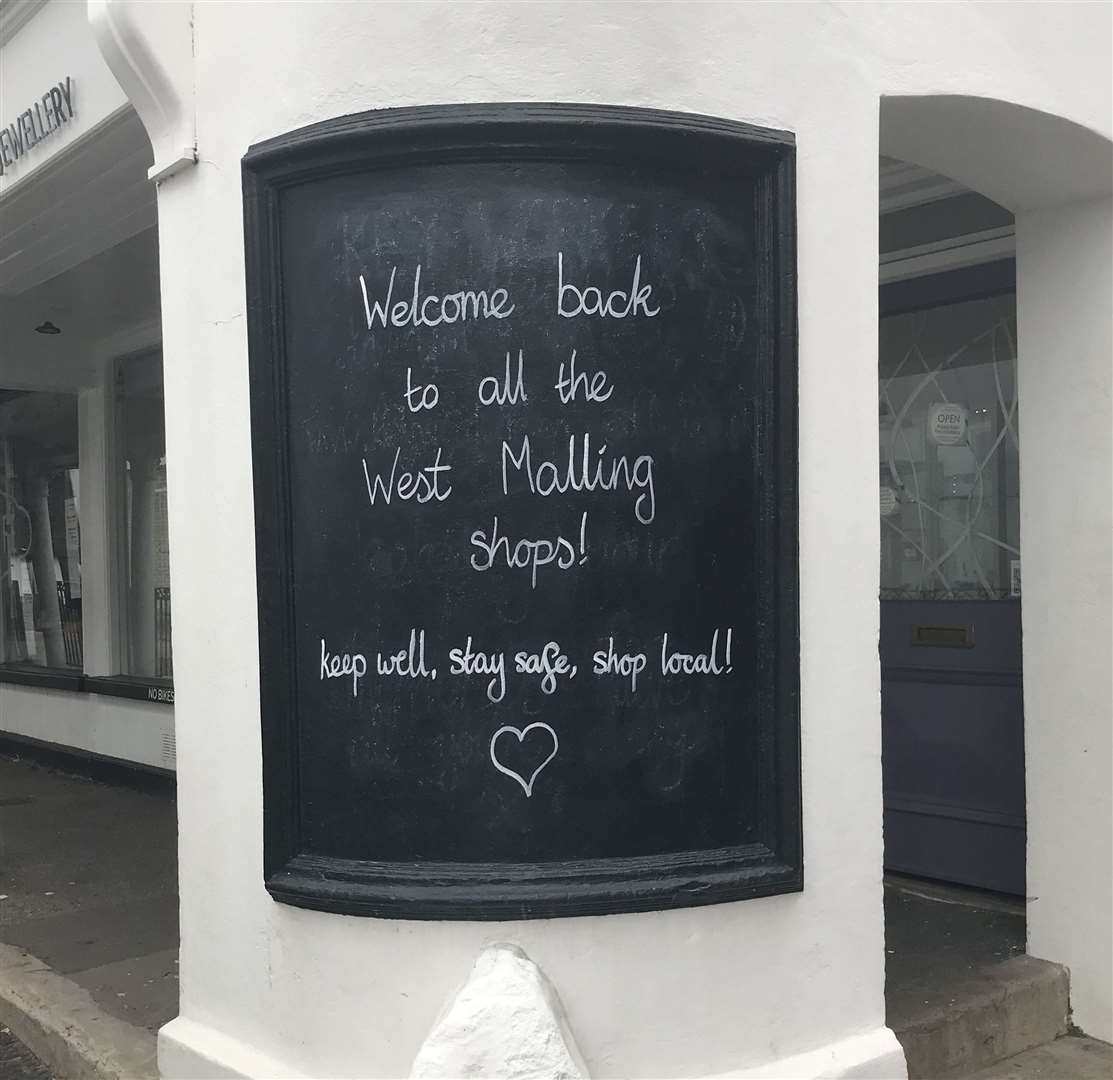 JEWELLERY
Welcome back
to all the
West Malling
shops!
keep well, stay safe, shop local!
NO BIKES
OPEN